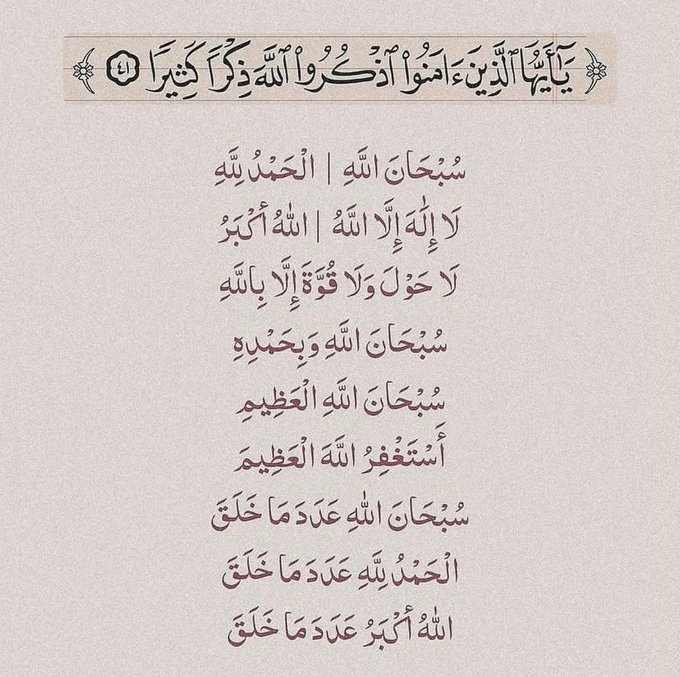 ﴿ يَٰٓأَيُّهَا ٱلَّذِينَ ءَامَنُوا۟ ٱذْكُرُوا۟ ٱللَّهَ ذِكْرًا كَثِيرًا ٤١ ﴾
سُبْحَانَ اللَّهِ | الْحَمْدُ لِلَّهِ
لَا إِلَٰهَ إِلَّا اللَّهُ | اللهُ أَكْبَرُ
لَا حَوْلَ وَلَا قُوَّةَ إِلَّا بِاللَّهِ
سُبْحَانَ اللَّهِ وَبِحَمْدِهِ
سُبْحَانَ اللَّهِ الْعَظِيمِ
أَسْتَغْفِرُ اللَّهَ الْعَظِيمَ
سُبْحَانَ اللهِ عَدَدَ مَا خَلَقَ
الْحَمْدُ لِلَّهِ عَدَدَ مَا خَلَقَ
اللهُ أَكْبَرُ عَدَدَ مَا خَلَقَ